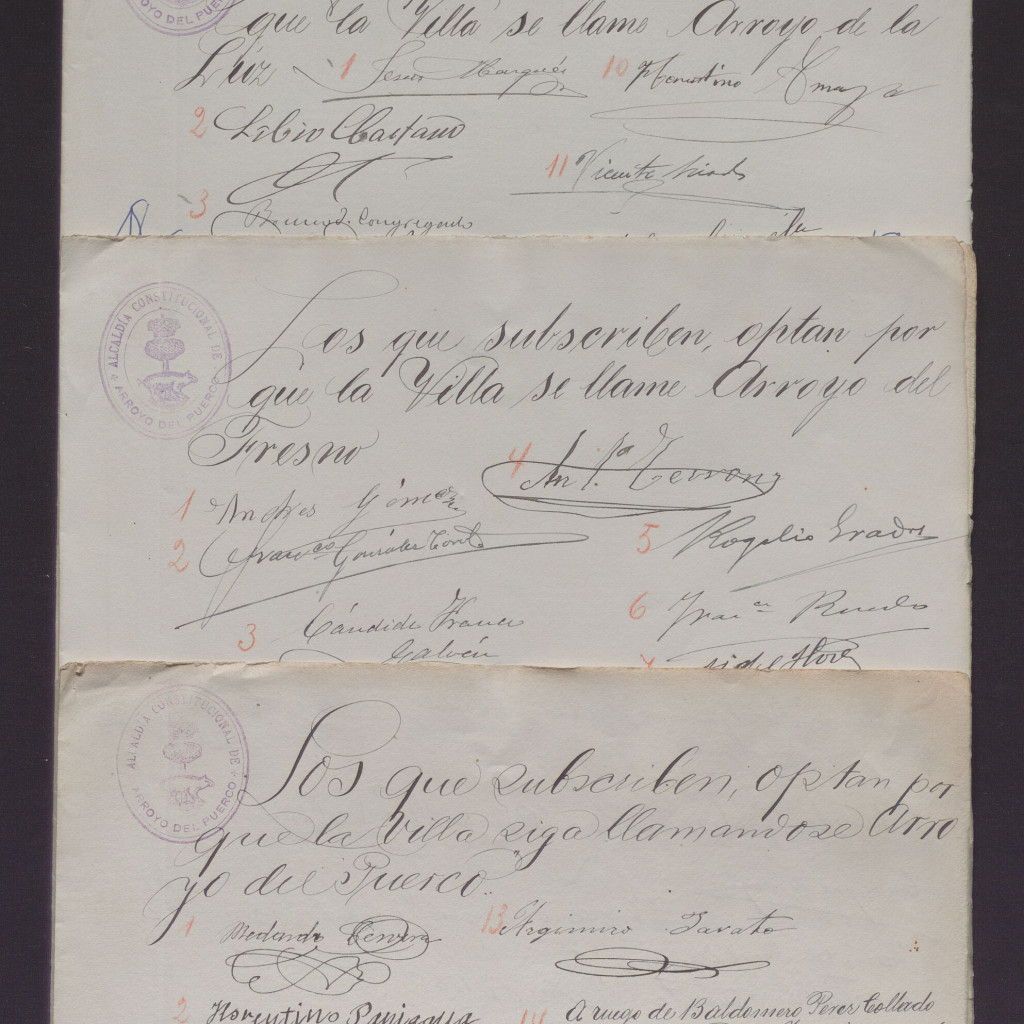 ARROYO DEL PUERCO
que la Villa se llame Arroyo de la
Luz
1 Jesus Marqués
10 Florentino Amaya
2 Libio Chartano
11 Vicente
3 Congregado
ALCALDÍA CONSTITUCIONAL DE
ARROYO DEL PUERCO
Los que subscriben, optan por
que la Villa se llame Arroyo del
Fresno
1 Andres Gómez
4
2 Franco González
5 Rogelio Grados
3 Cándido Franco
Galván
6
ALCALDÍA CONSTITUCIONAL DE
ARROYO DEL PUERCO
Los que subscriben, optan por
que la Villa siga llamandose Arro
yo del Puerco".
1 Medardo Cervera
13 Argimiro Tavato
2 Florentino
14 A ruego de Baldomero Perez Collado